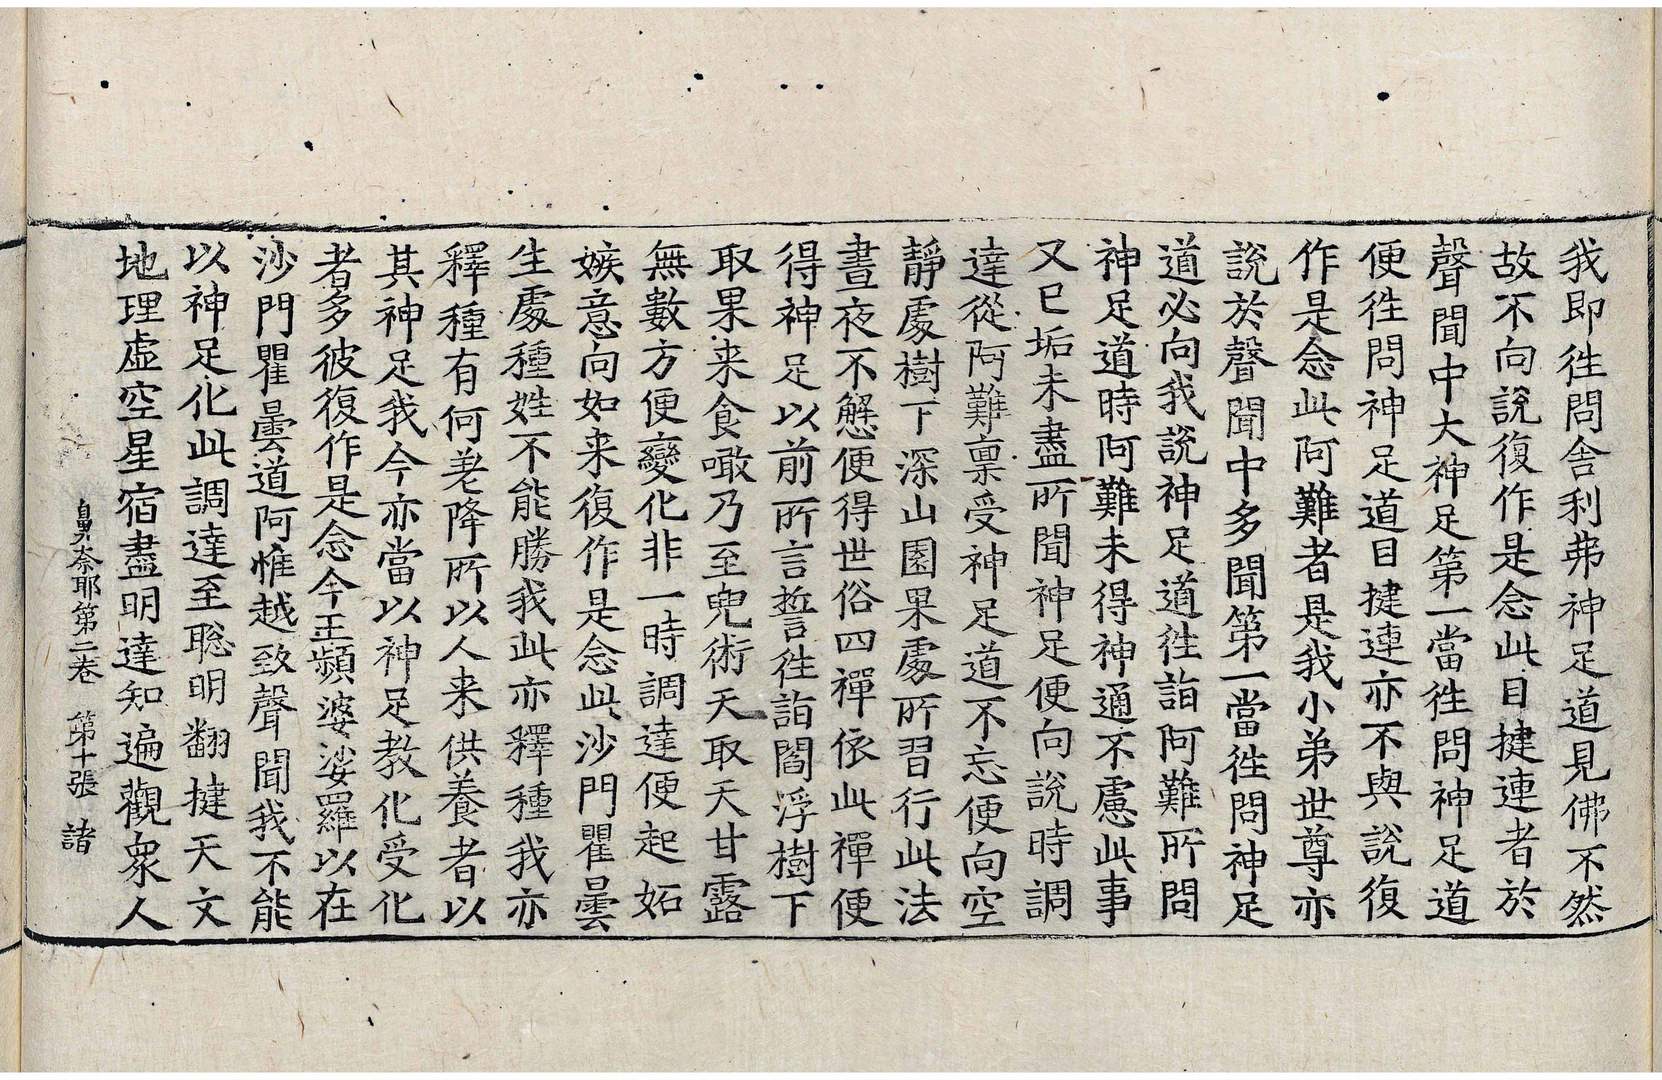 我即徃問舎利弗神足道見佛不然
故不向說復作是念此目揵連者於
聲聞中大神足第一當徃問神足道
便徃問神足道目揵連亦不與說復
作是念此阿難者是我小弟世尊亦
說於聲聞中多聞第一當徃問神足
道必向我說神足道徃詣阿難所問
神足道時阿難未得神通不慮此事
又已垢未盡所聞神足便向說時調
達從阿難稟受神足道不忘便向空
靜處樹下深山園果處所習行此法
晝夜不懈便得世俗四禪依此禪便
得神足以前所言誓徃詣閻浮樹下
取果来食噉乃至兜術天取天甘露
無數方便變化非一時調達便起妬
嫉意向如来復作是念此沙門瞿曇
生處種姓不能勝我此亦釋種我亦
釋種有何差降所以人来供養者以
其神足我今亦當以神足教化受化
者多彼復作是念今王頻婆娑羅以在
沙門瞿曇道阿惟越致聲聞我不能
以神足化此調達至聡明翻揵天文
地理虛空星宿盡明達知遍觀衆人
鼻奈耶第二卷 第十張 諸